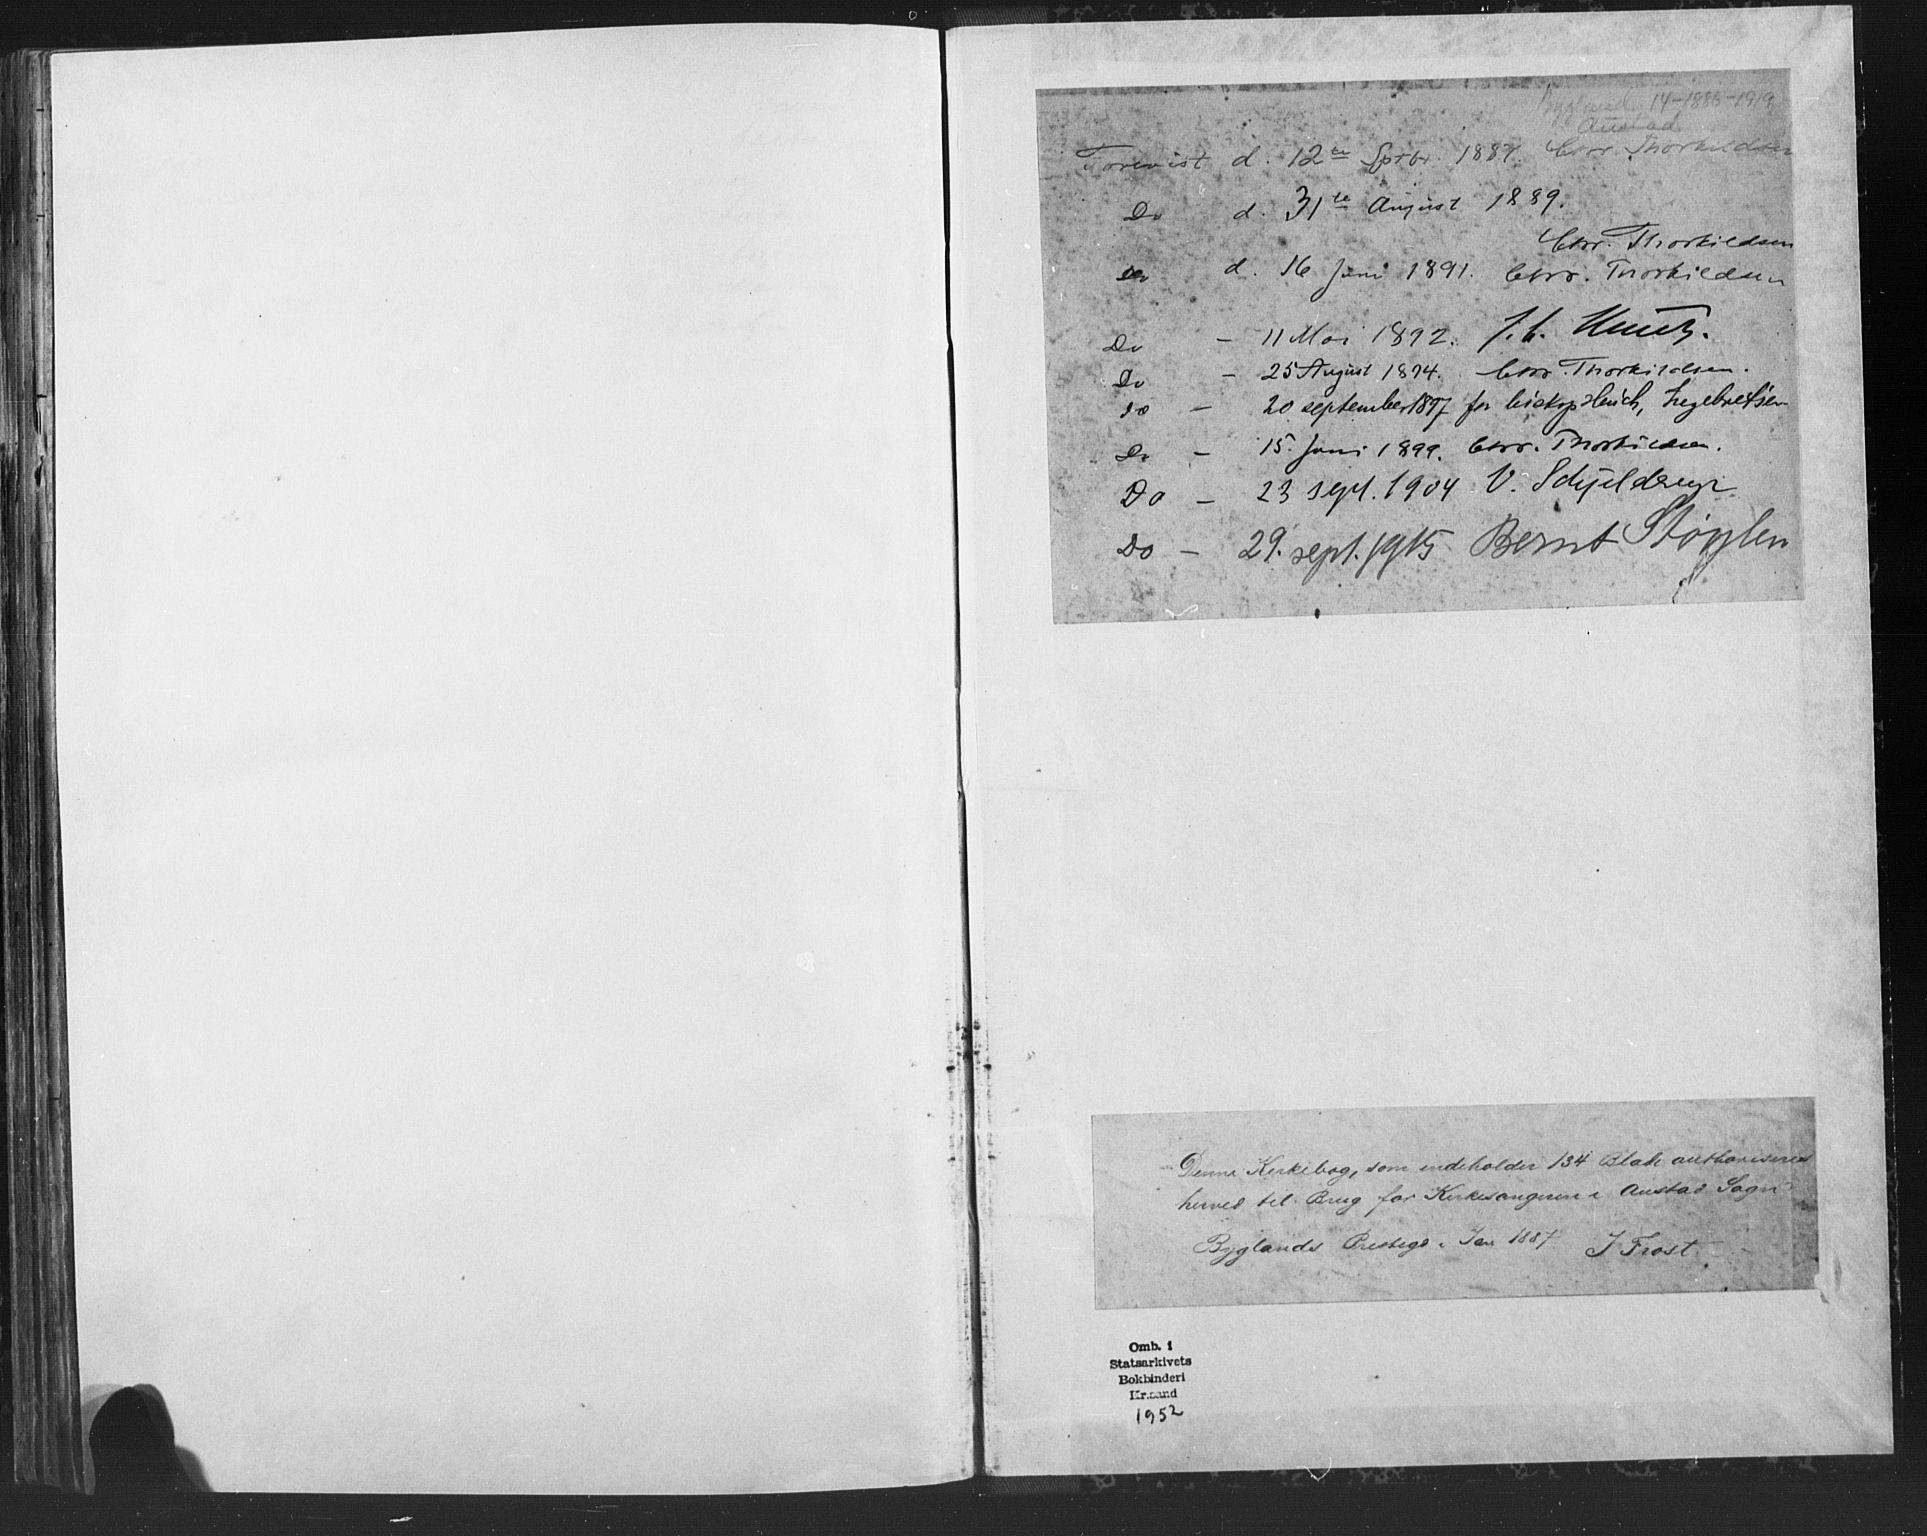 Bygland 14-1885-1919
Austad
Forevist d. 12te Sptbr. 1887. Chr. Thorkildsen
Do d. 31te August 1889.
Chr. Thorkildsen
Do d. 16 Juni 1891. Chr. Thorkildsen
Do - 11 Mai 1892. J. C. Heuch.
Do - 25 August 1894. Chr. Thorkildsen.
Do - 20 september 1897 for biskop Heuch, Ingebretsen
Do - 15. Juni 1899. Chr. Thorkildsen.
Do - 23 sept. 1904 V. Schjelderup
Do - 29. sept. 1915 Bernt Støylen
Denne Kirkebog, som indeholder 134 Blade authoriseres
herved til Brug for Kirkesangeren i Austad Sogn
Byglands Prestegd i Jan 1887 J Frost
Omb. i
Statsarkivets
Bokbinderi
Kr.sand
1952